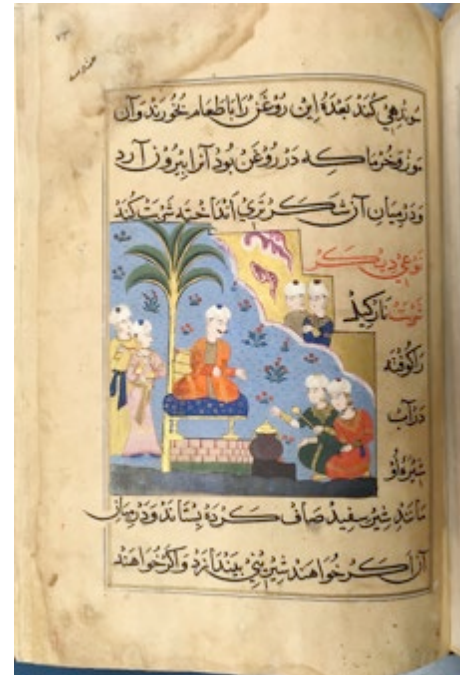 کند بعده این روغن را با طعام بخورند و آن
موز و خرما که در روغن بود آنرا بیرون آرد
و در میان آن شکر تری انداخته شربت کند
نوعی دیگر
شربت نارکیل
را کوفته
در آب
مانند شیر سفید صاف کرده بستانند و در میان
آن اگر خواهند شیرینی بیندازد و اگر خواهند